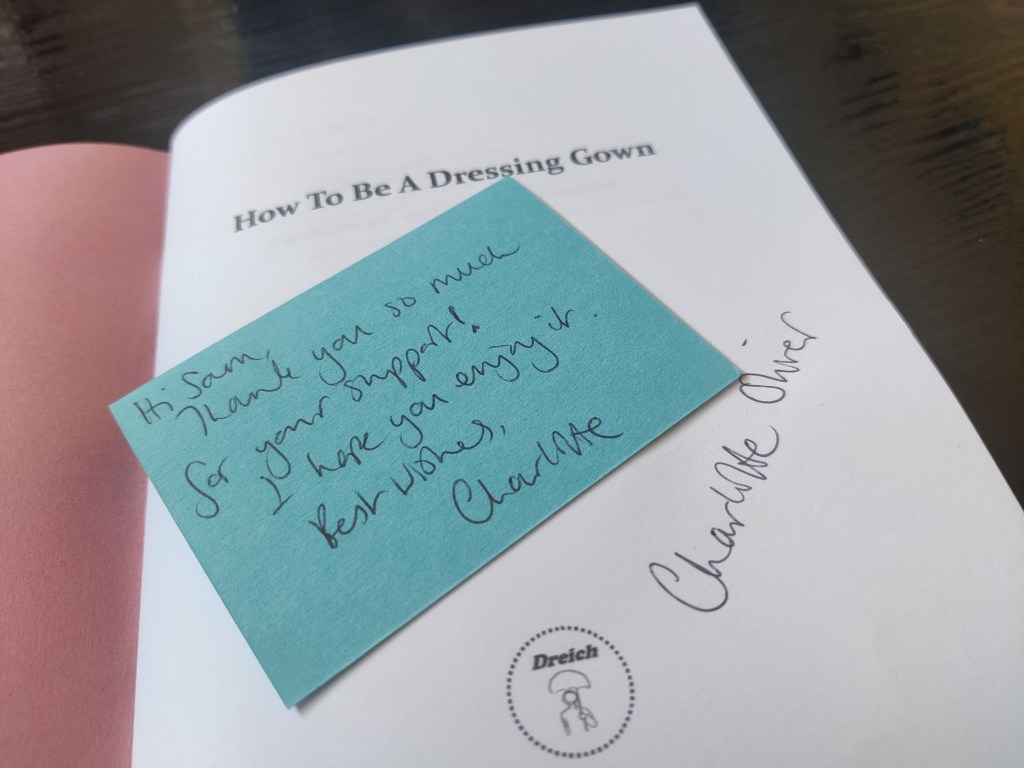 How To Be A Dressing Gown
Hi Sam,
Thank you so much
for your support!
I hope you enjoy it.
Best wishes,
Charlotte
Charlotte Oliver
Dreich